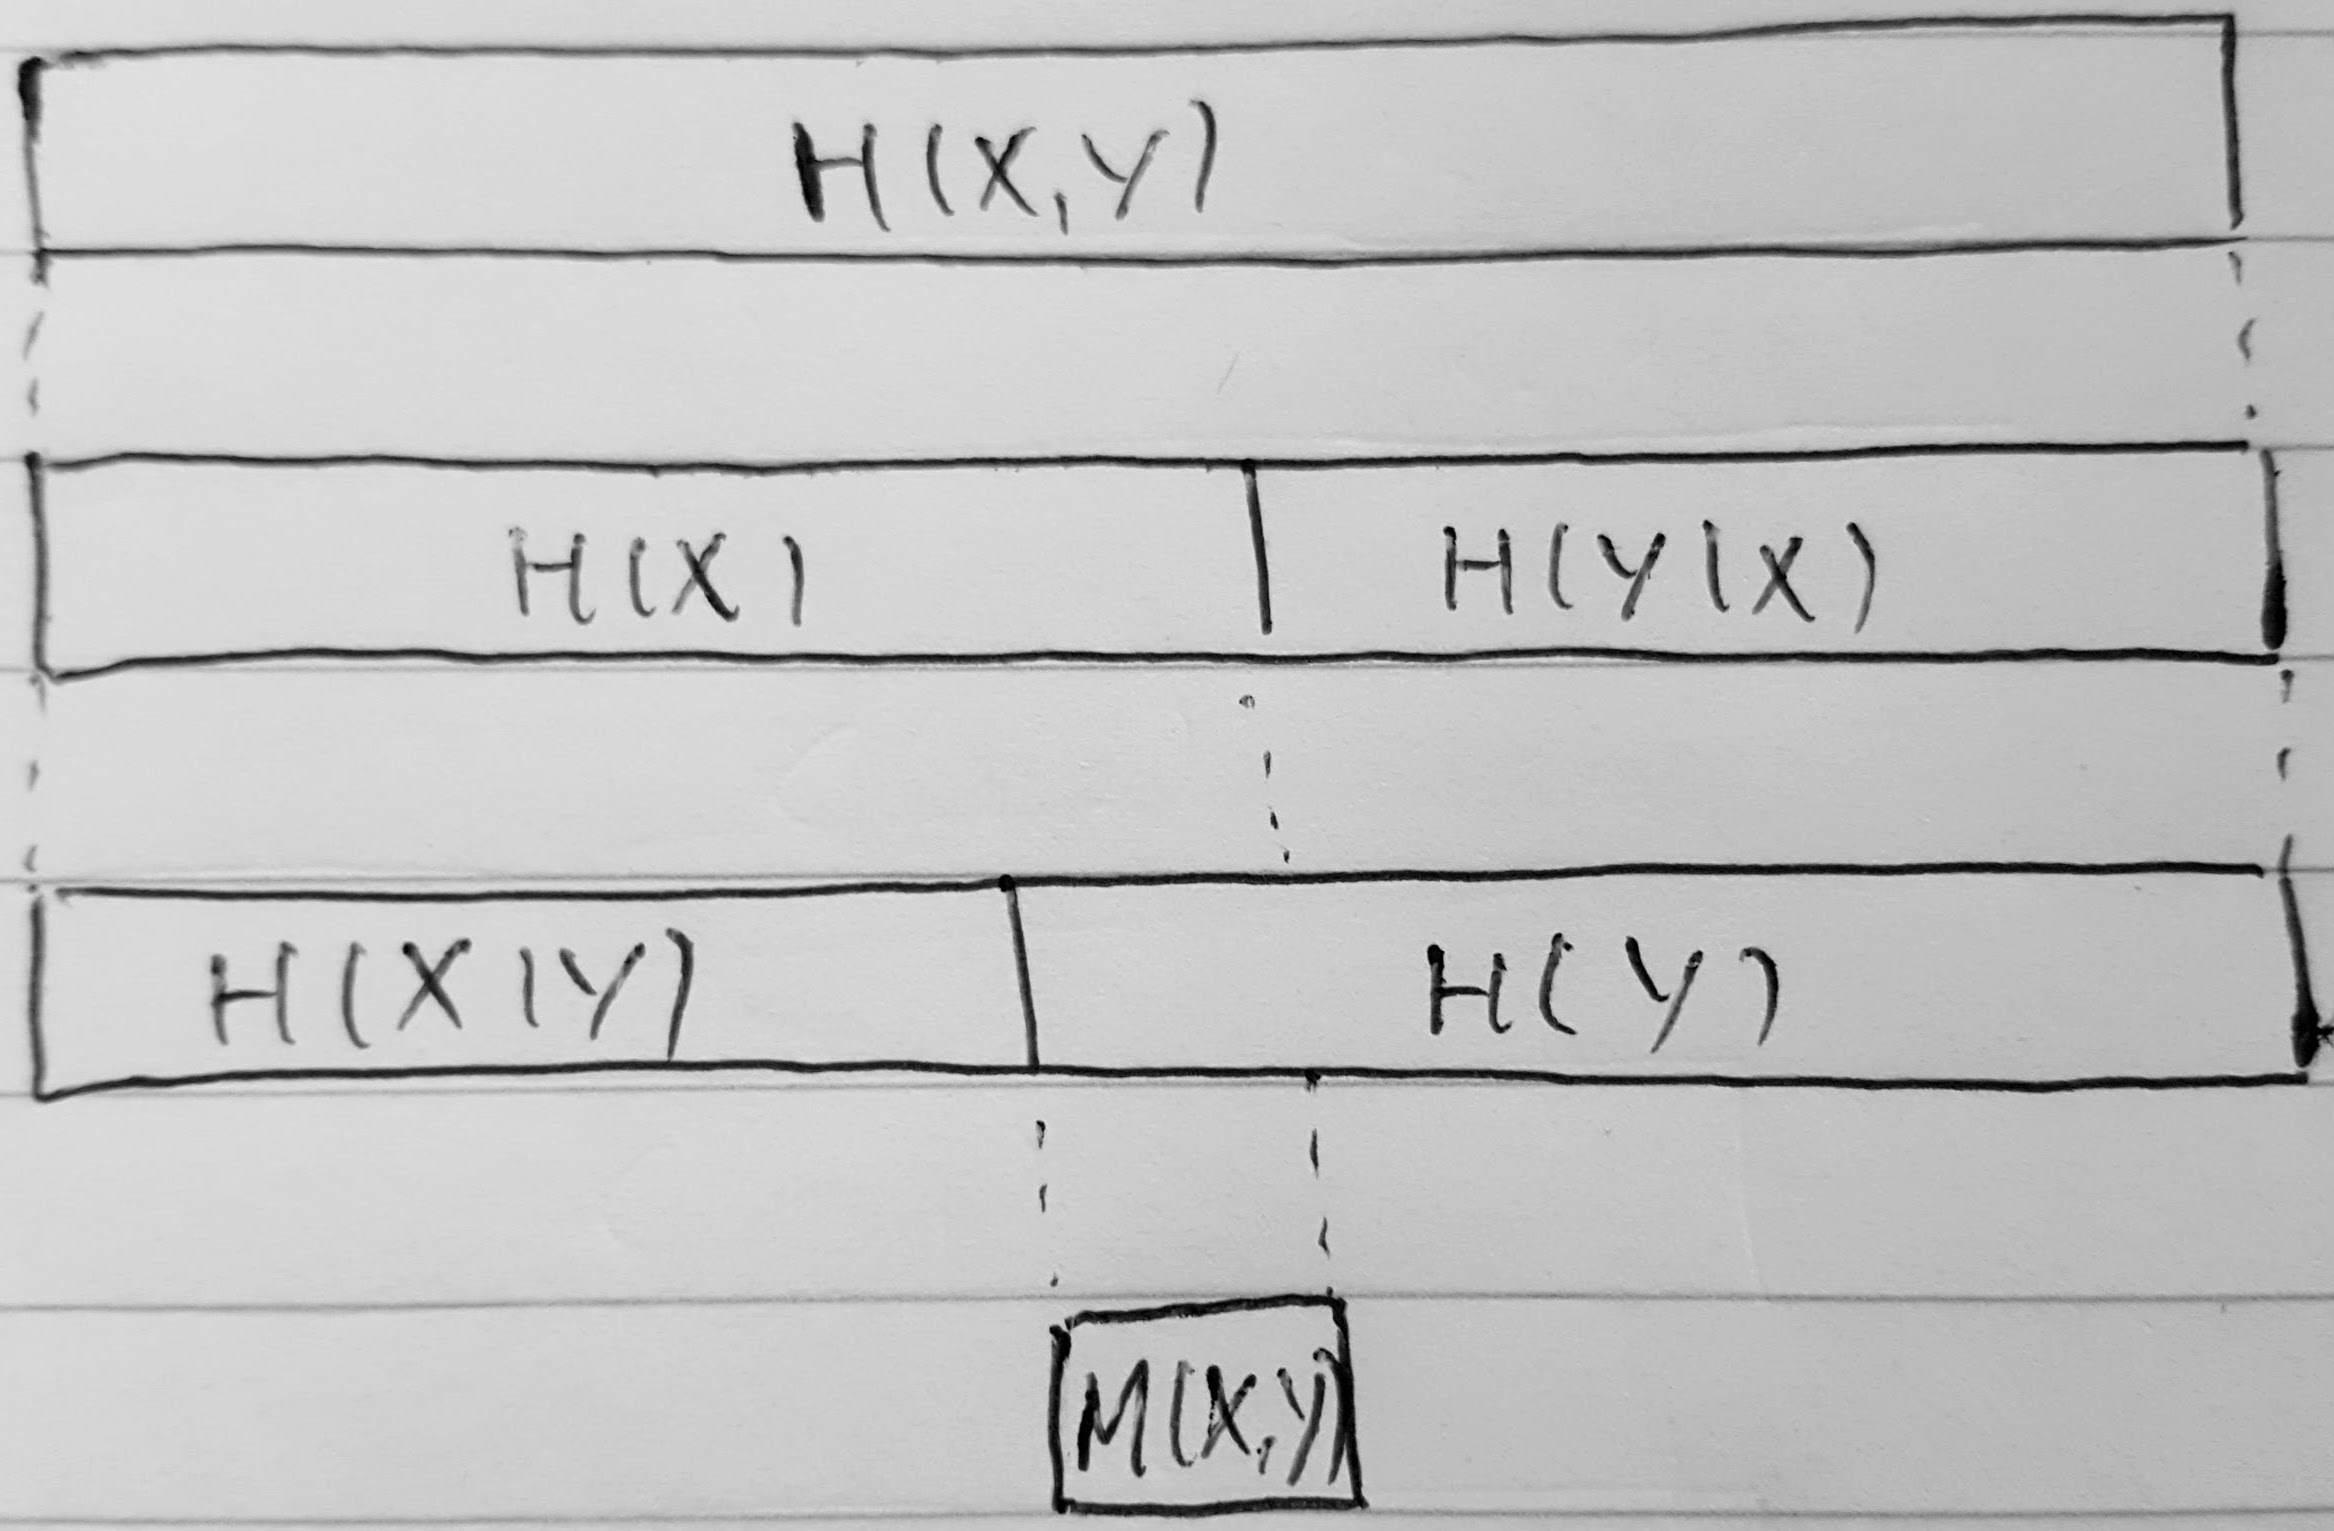 H(X,Y)
H(X) H(Y|X)
H(X|Y) H(Y)
M(X,Y)